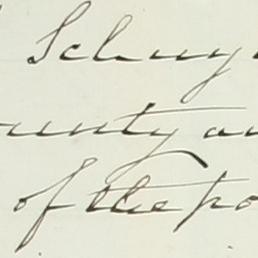 Schuy
ounty an
of the po